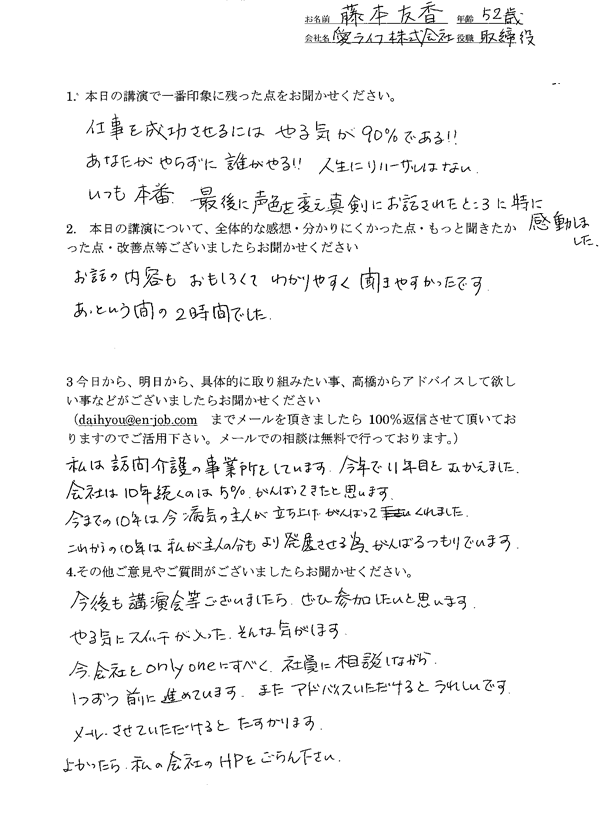 お名前 藤本友香 年齢 52歳
会社名 愛ライフ株式会社 役職 取締役
1. 本日の講演で一番印象に残った点をお聞かせください。
仕事を成功させるには やる気が90%である!!
あなたがやらずに誰がやる!! 人生にリハーサルはない
いつも本番. 最後に声色を変え真剣にお話されたところに特に感動しました.
2. 本日の講演について、全体的な感想・分かりにくかった点・もっと聞きたかっ
た点・改善点等ございましたらお聞かせください
お話の内容も おもしろくて わかりやすく 聞きやすかったです.
あっという間の2時間でした.
3 今日から、明日から、具体的に取り組みたい事、高橋からアドバイスして欲し
い事などがございましたらお聞かせください
（daihyou@en-job.com までメールを頂きましたら 100%返信させて頂いてお
りますのでご活用下さい。メールでの相談は無料で行っております。）
私は訪問介護の事業所をしています. 今年で11年目をむかえました.
会社は10年続くのは5%. がんばってきたと思います.
今までの10年は今病気の主人が立ち上げ がんばって くれました.
これからの10年は私が主人の分も より発展させる為、がんばるつもりでいます.
4.その他ご意見やご質問がございましたらお聞かせください。
今後も講演会等ございましたら. ぜひ参加したいと思います.
やる気にスイッチが入った. そんな気がします.
今. 会社をonly oneにすべく. 社員に相談しながら.
1つずつ前に進めています. また アドバイスいただけると うれしいです.
メール. させていただけると たすかります.
よかったら. 私の会社のHPをごらん下さい.